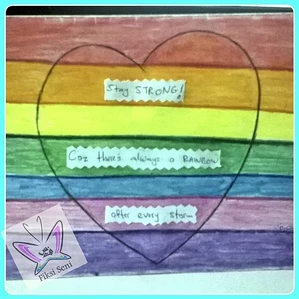 Stay STRONG!
Coz there's always a RAINBOW
after every storm
Fiksi Seni